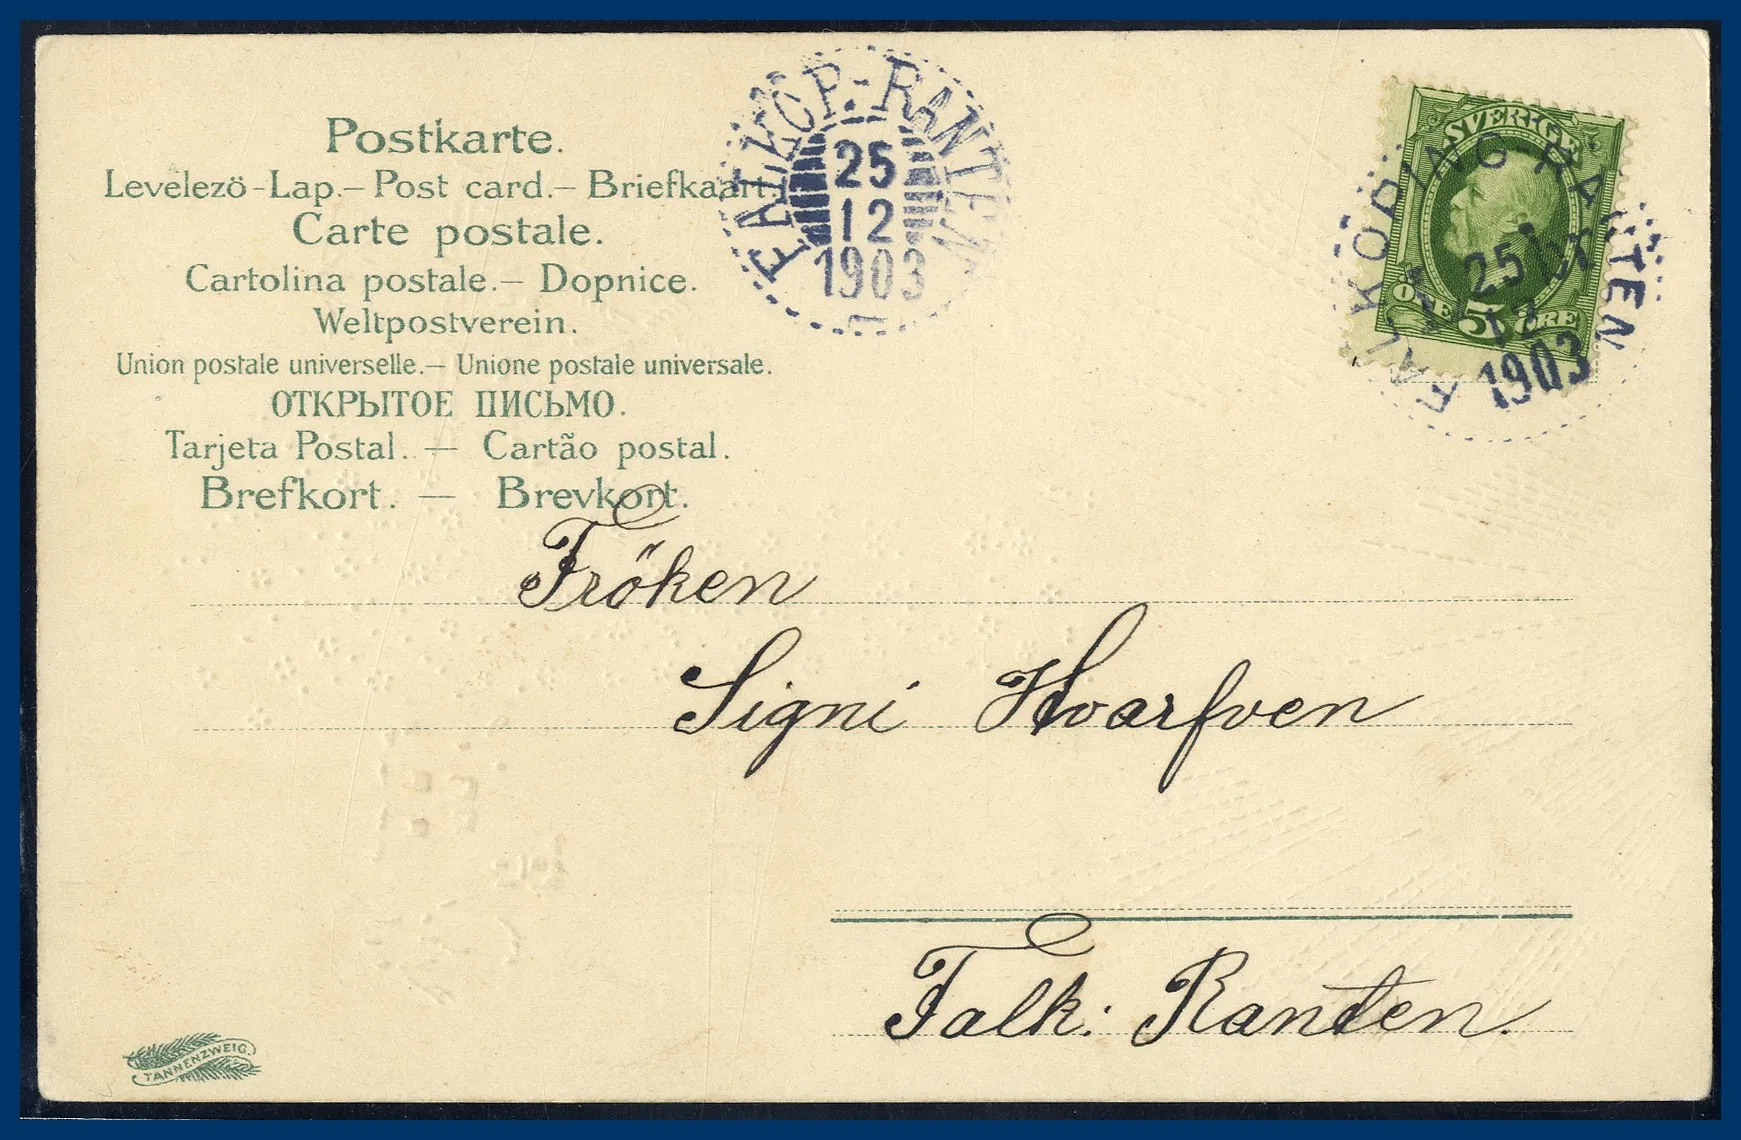 Postkarte.
Levelezö-Lap.– Post card.– Briefkaart.
Carte postale.
Cartolina postale.– Dopnice.
Weltpostverein.
Union postale universelle.– Unione postale universale.
ОТКРЫТОЕ ПИСЬМО.
Tarjeta Postal. — Cartão postal.
Brefkort. — Brevkort.
FALKÖP.-RANTEN
25
12
1903
SVERIGE
ÖRE 5 ÖRE
FALKÖPING RANTEN
25
12
1903
Fröken
Signi Hvarfven
Falk: Ranten.
TANNENZWEIG.